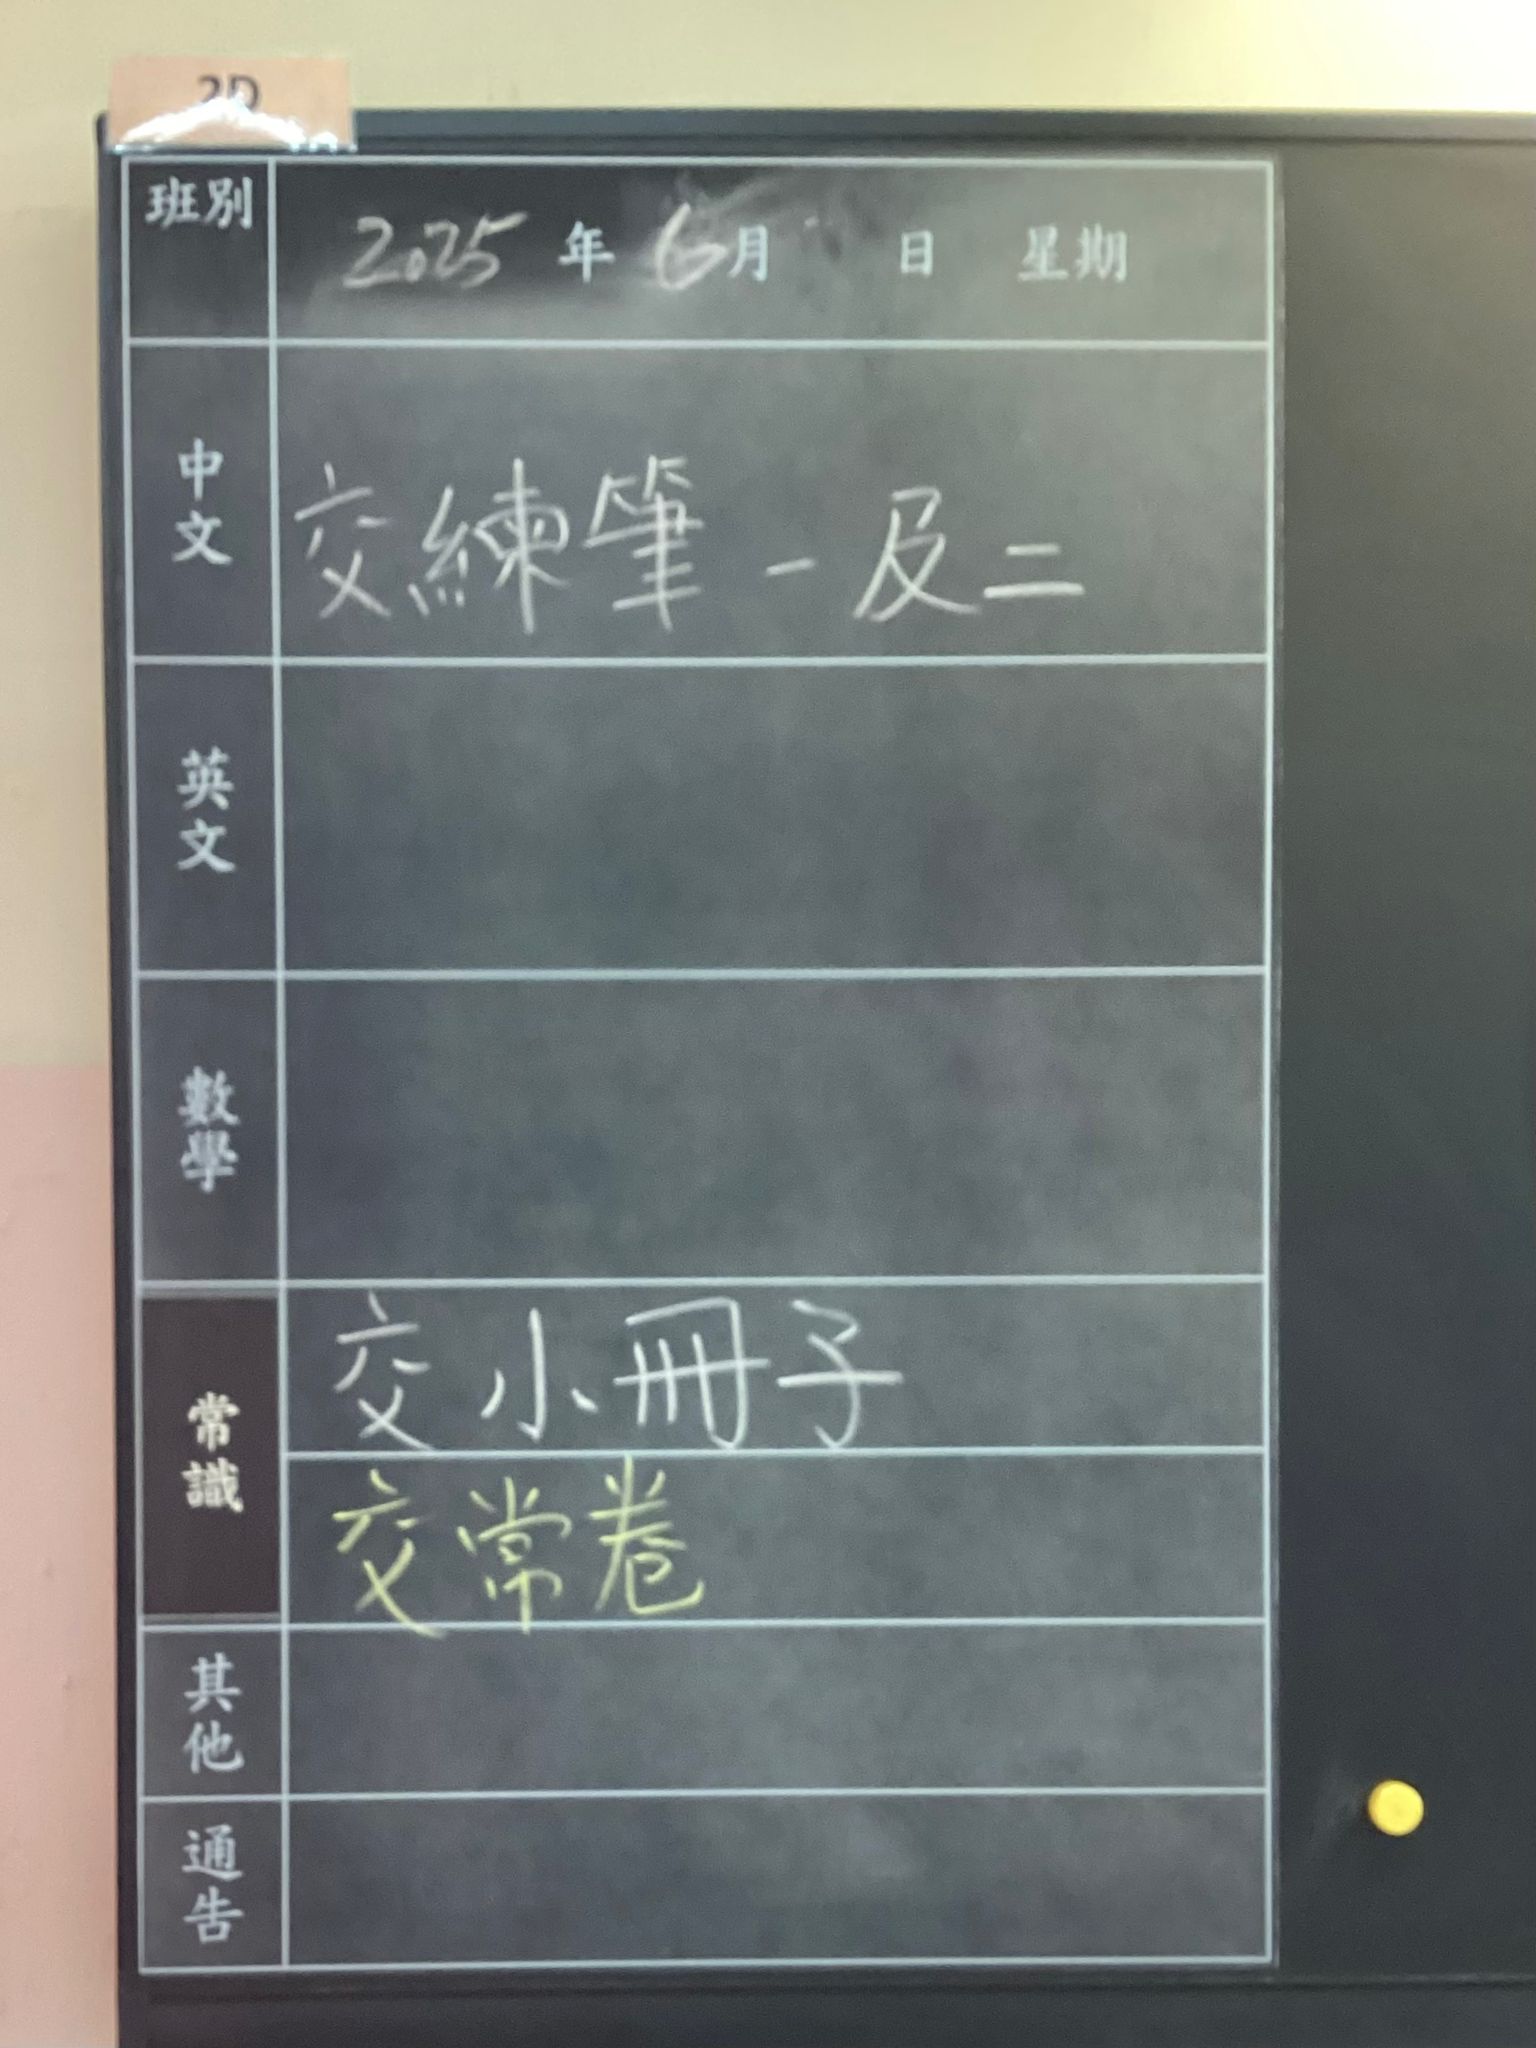 2D
班別
2025 年 6月 日 星期
中文
交練筆一及二
英文
數學
常識
交小冊子
交常卷
其他
通告